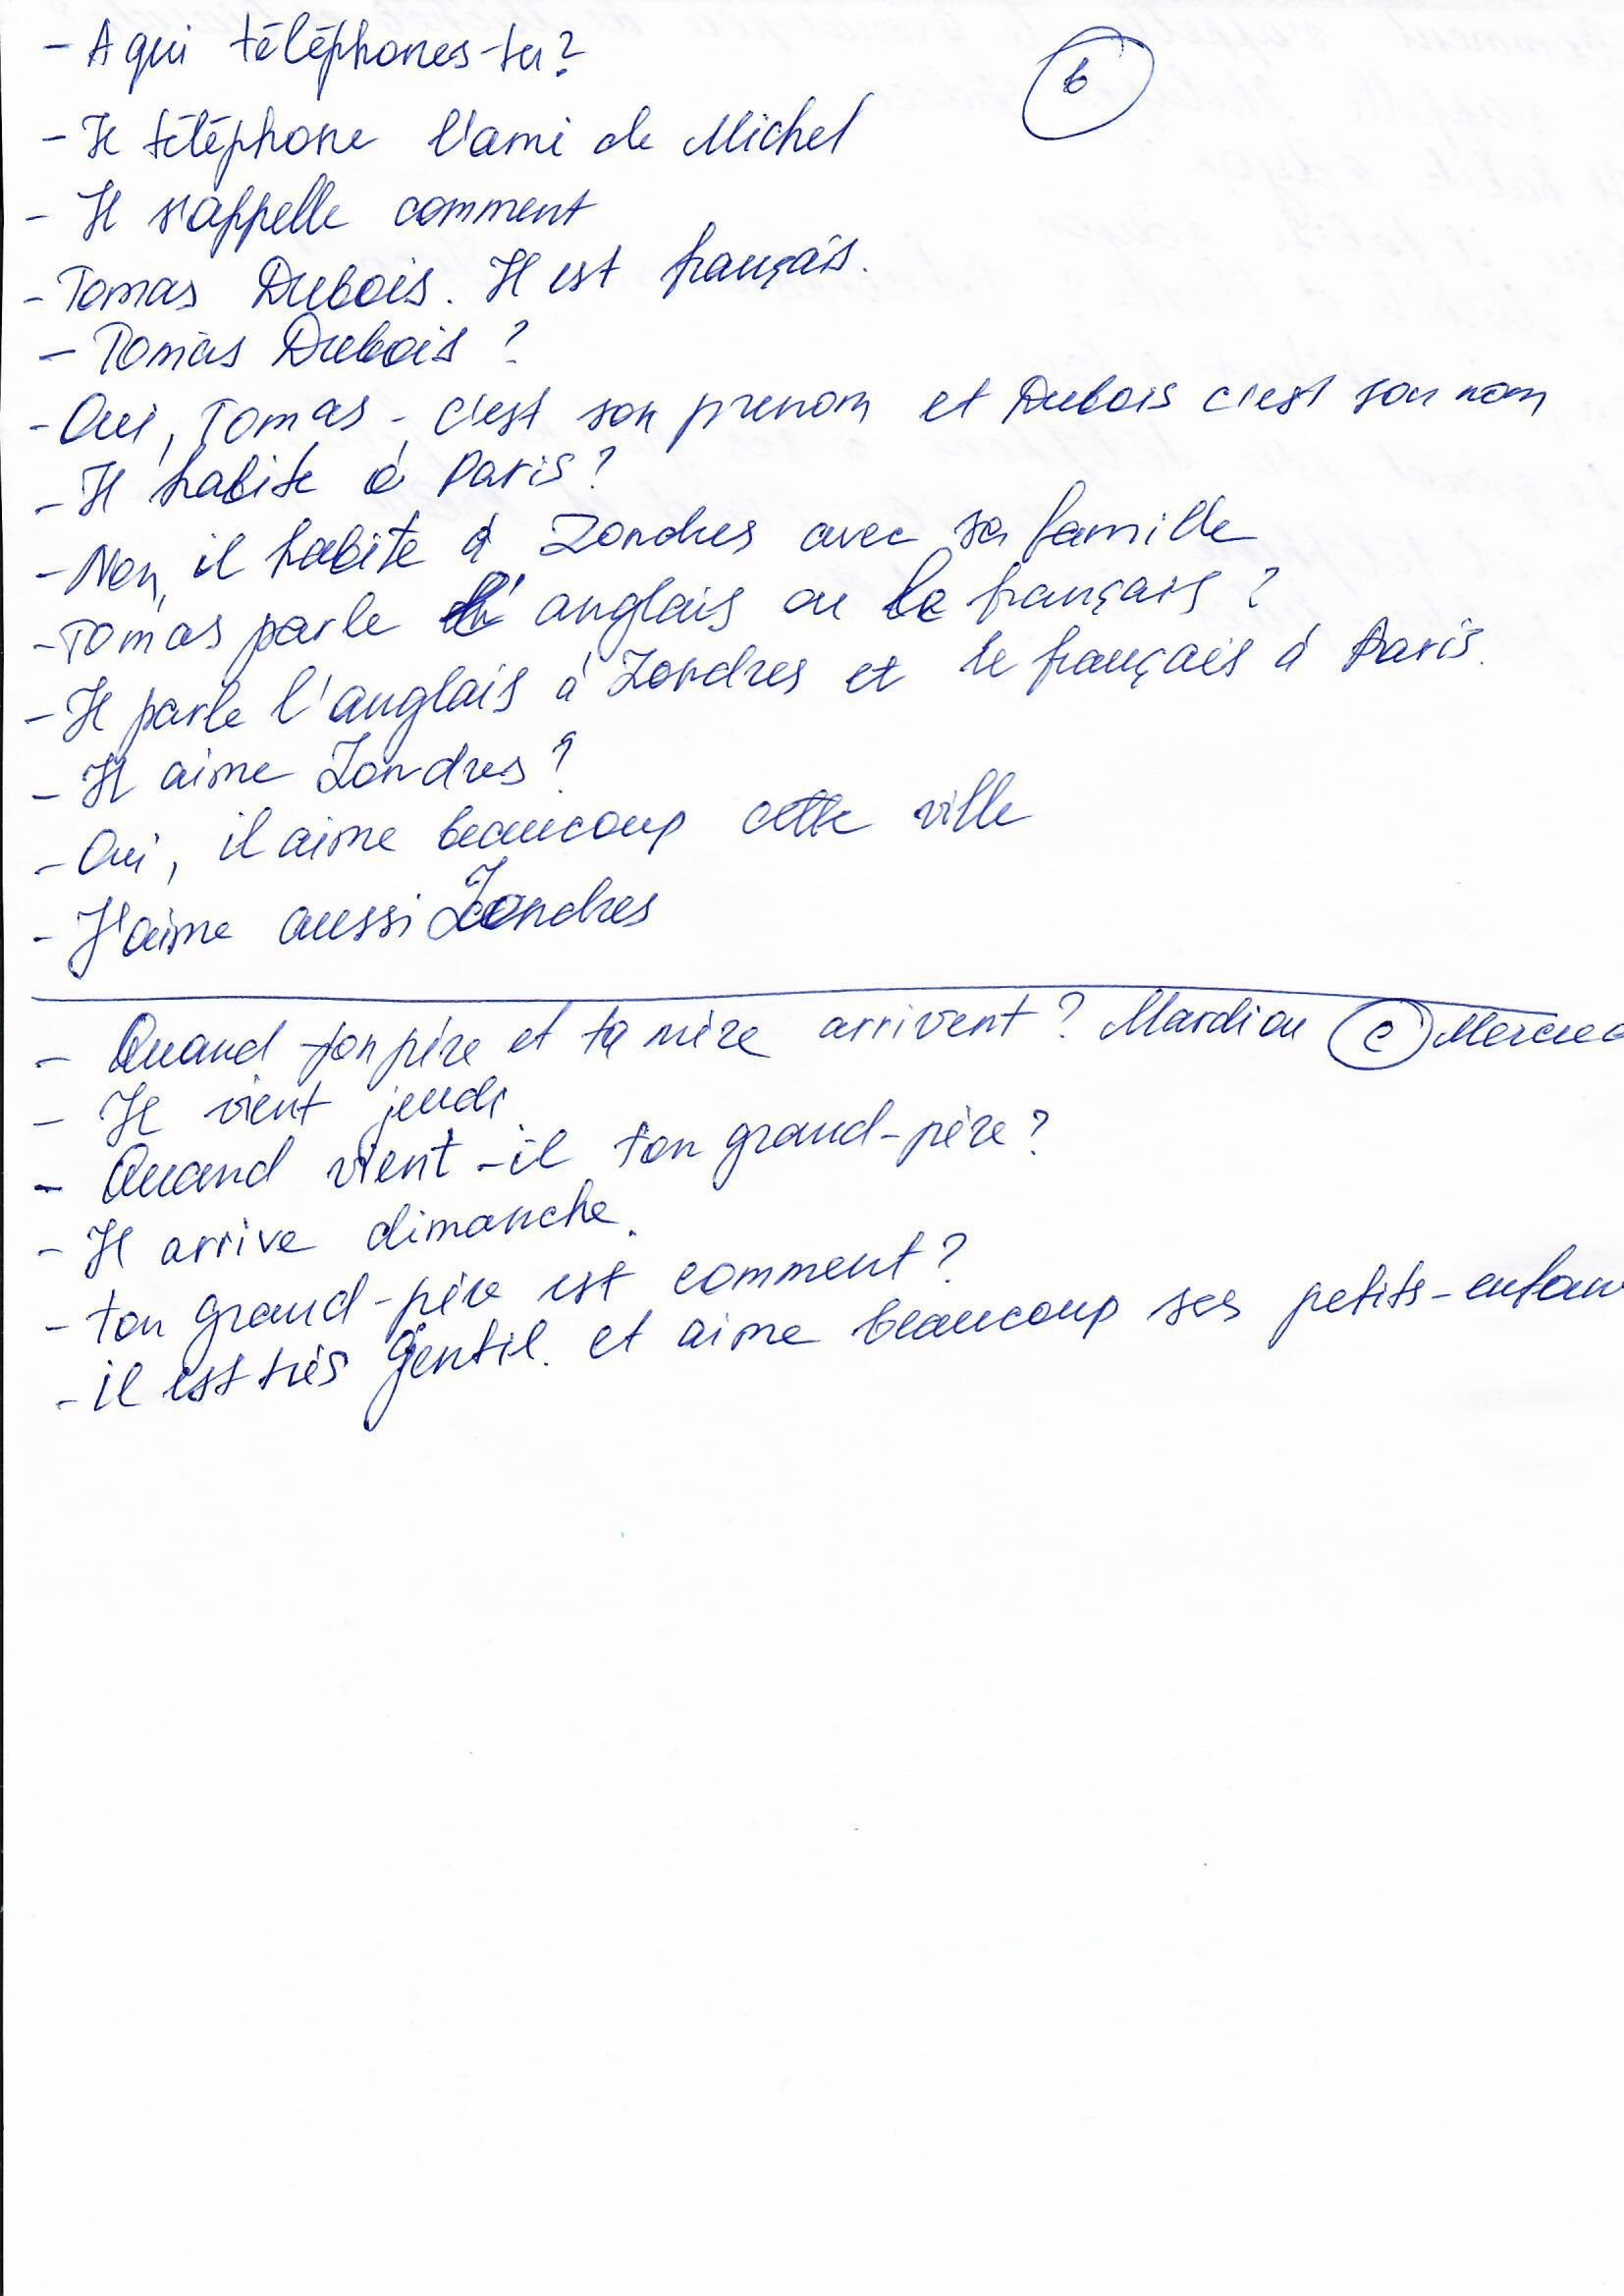 - A qui téléphones-tu?
b
- Je téléphone l'ami de Michel
- Il s'appelle comment
- Tomas Dubois. Il est français.
- Tomas Dubois ?
- Oui, Tomas - c'est son prenom et Dubois c'est son nom
- Il habite à Paris?
- Non, il habite à Londres avec sa famille
- Tomas parle l'anglais ou le français ?
- Il parle l'anglais à Londres et le français à Paris.
- Il aime Londres?
- Oui, il aime beaucoup cette ville
- J'aime aussi Londres
- Quand ton père et ta mère arrivent? Mardi ou c
- Il vient jeudi
- Quand vient-il ton grand-père?
- Il arrive dimanche.
- ton grand-père est comment?
- il est très gentil. et aime beaucoup ses